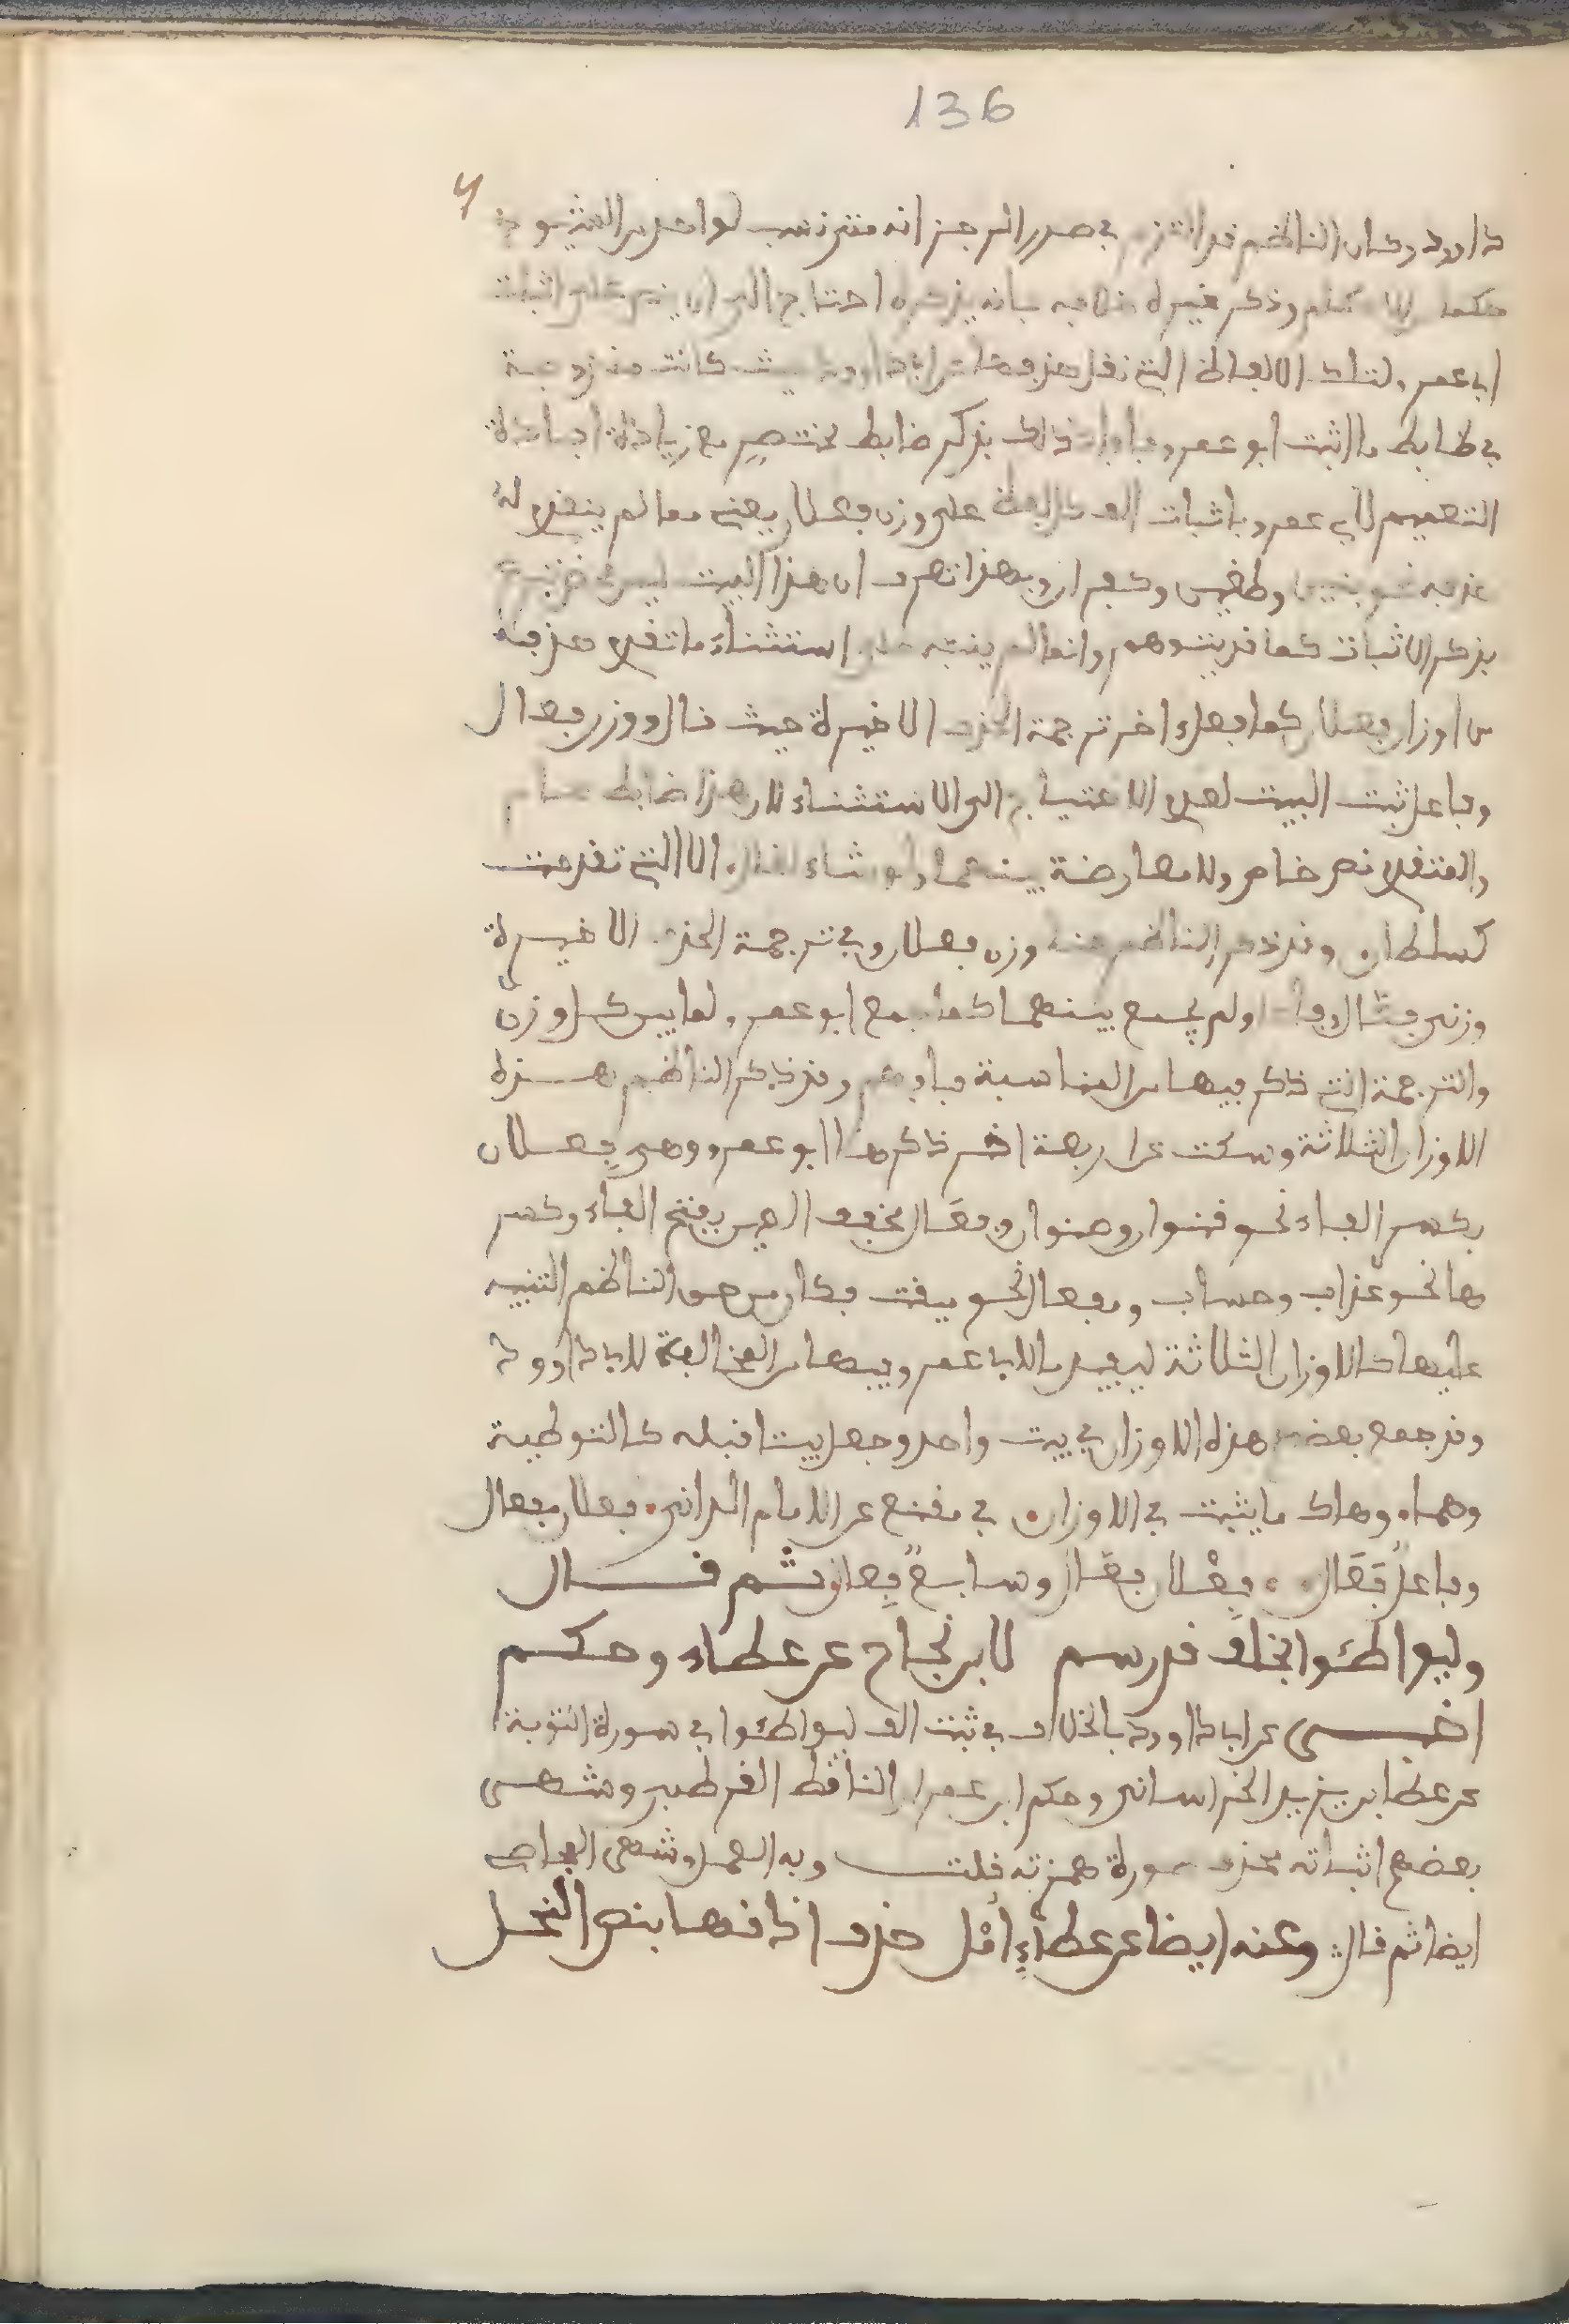 136
داوود وكان الناظم قد التزم في صدر الرجز انه متى نسب لواحد من الشيوخ
حكما وذكر غيره خلافه بانه يذكره احتاج الى ان ينص على اثبات
ابي عمرو لتلك الالفاظ التي نقل حذفها عن ابي داوود حيث كانت مندرجة
في ضابط ما اثبت ابو عمرو فافاد ذلك بذكر ضابط مختصر مع زيادة افادة
التعميم لابي عمرو باثبات الف كل لفظ على وزن فعلان يعني مما لم يتقدم له
حذفه نحو بنين وطغين وكفران وبهذا تعرف ان هذا البيت ليس
بذكر الاثبات كما قد يتوهم وانما لم ينبه على استثناء ما تقدم حذفه
من اوزان فعلان كما فعل في اخر ترجمة الحذف الاخيرة حيث قال ووزن فعال
وفاعل ثبت البيت لعدم الاحتياج الى الاستثناء لان هذا ضابط عام
والمتقدم نص خاص ولا معارضة بينهما ولو شاء لقال الا التي تقدمت
كسلطان وقد ذكر الناظم هنا وزن فعلان وفي ترجمة الحذف الاخيرة
وزني فعال وفاعل ولم يجمع بينهما كما جمع ابو عمرو لما بين كل وزن
والترجمة التي ذكر فيها من المناسبة فافهم وقد ذكر الناظم هذه
الاوزان الثلاثة وسكت عن اربعة اخر ذكرها ابو عمرو وهي فِعلان
بكسر الفاء نحو قنوان وصنوان وفعال مخفف العين بفتح الفاء وكسر
ها نحو عذاب وحساب ومفعال نحو ميقت فكان من حق الناظم التنبيه
عليها كالاوزان الثلاثة ليفيد ما لابي عمرو فيها من المخالفة لابي داوود
وقد جمع بعضهم هذه الاوزان في بيت واحد وجعل بيتا قبله كالتوطية
وهما وهاك ما يثبت في الاوزان في مقنع عن الامام الداني فعلان مفعال
وفاعل فَعَال فِعْلان فعّال وسابع فِعال ثم قال
وليواطئوا بخلف قد رسم لابن نجاح عن عطاء وحكم
اخبر عن ابي داوود بالخلاف في ثبت الف ليواطئوا في سورة التوبة
عن عطا بن يزيد الخراساني وحكم ابن عمران الناقط القرطبي وشهر
بعضهم اثباته بحذف صورة همزته قلت وبه العمل وشهر
ايضا ثم قال وعنه ايضا عن عطاءٍ اثل حذف اذاقها بنص النحل